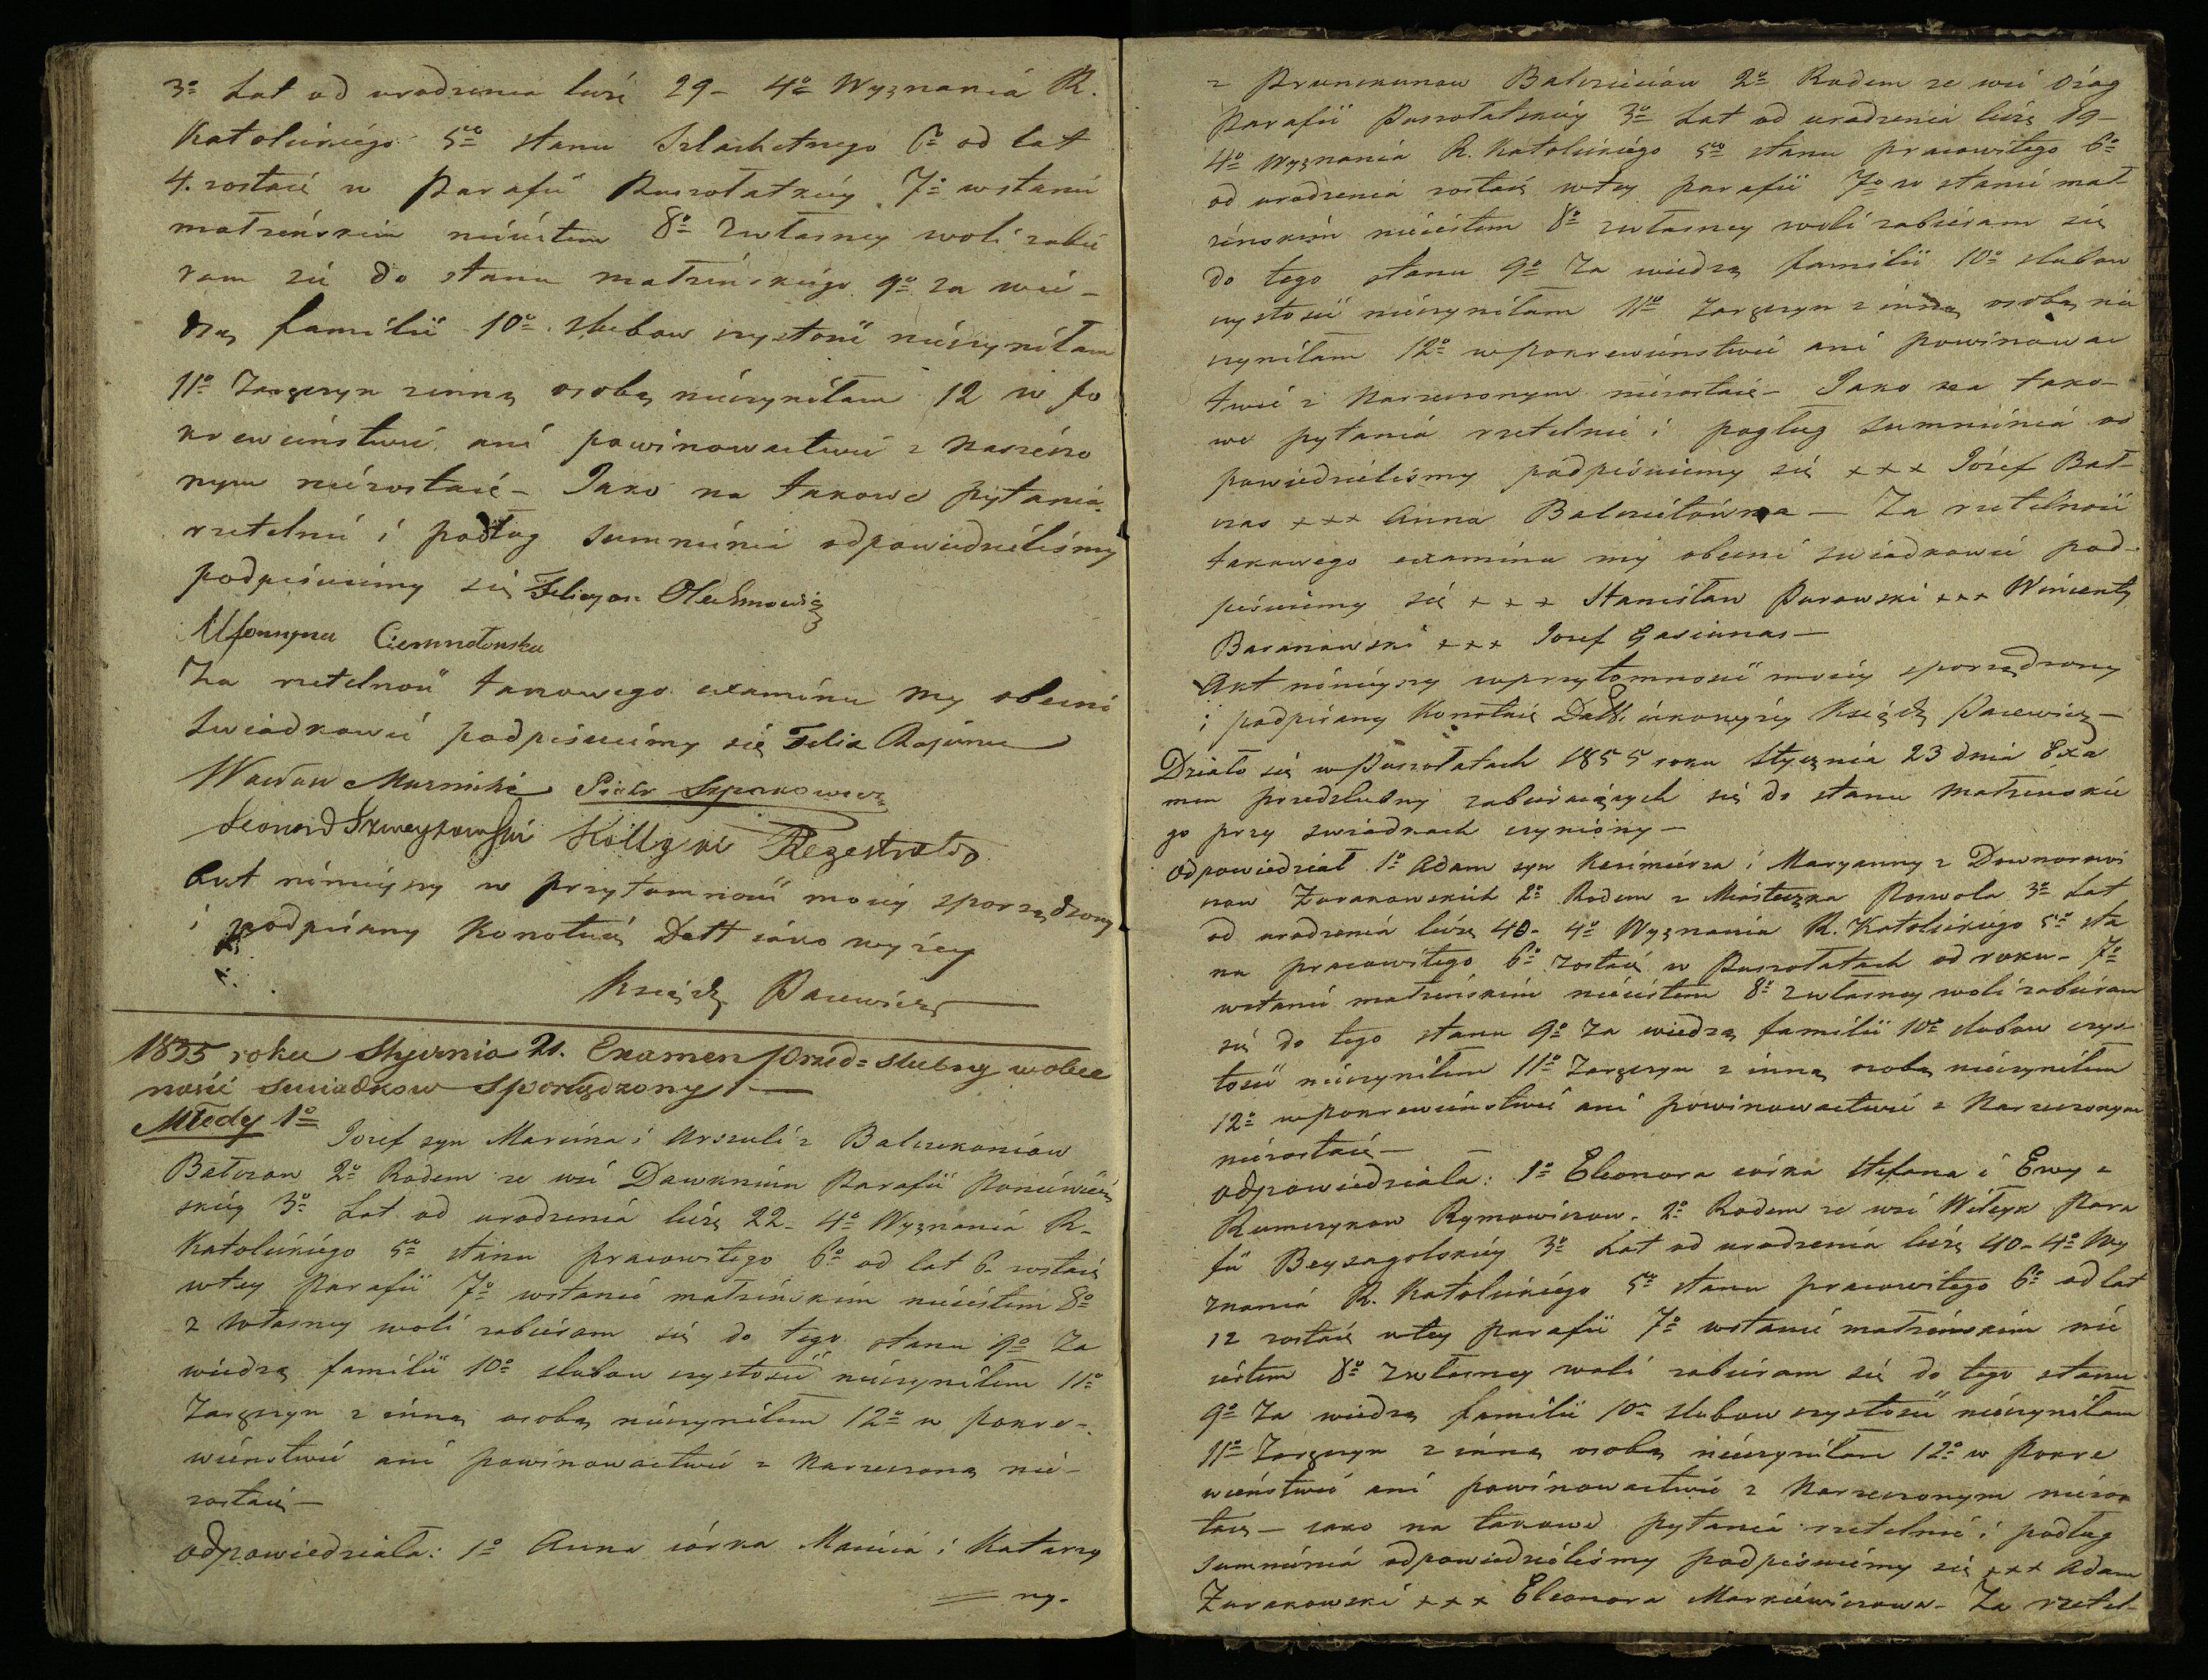 3o Lat od urodzenia liczę 29 - 4o Wyznania R.
Katolickiego 5to stanu Szlachetnego 6o od lat
4. zostaię w Parafii Puszołatskiey 7o w stanie
małżeńskim nieiestem 8o z własney woli zabie
ram się do stanu małżeńskiego 9o za wie-
dzą familii 10o slubow czystości nieczyniłam
11o Zaręczyn z inną osobą nieczyniłam 12 w po
krewieństwie ani powinowactwie z Narzeczo
nym niezostaię - Jako na takowe pytania
rzetelnie i podług sumnienia odpowiedzieliśmy
podpisuiemy się Felicyan Olechnowicz
Ciemnołonska
Za rzetelność takowego examinu my obecni
swiadkowie podpisuiemy się Felix
Wacław Piotr
Leonard Regestrator
Akt ninieyszy w przytomności moiey sporządzony
i podpisany Konotuię Datt iako wyżey
Ksiądz Pacewicz
1855 roku Stycznia 21. Examen przed=slubny w obec
ności swiadkow sporządzony. —
Młody 1o Jozef syn Marcina i Urszuli z Balczkoniow
Bałczow 2o Rodem ze wsi Dawknian Parafii Poniewież
skiey 3o Lat od urodzenia liczę 22 - 4o Wyznania R.
Katolickiego 5to stanu pracowitego 6o od lat 6. zostaię
w tey Parafii 7o w stanie małżeńskim nieiestem 8o
z własney woli zabieram się do tego stanu 9o Za
wiedzą familii 10o slubow czystości nieczyniłem 11o
Zaręczyn z inną osobą nieczyniłem 12o w pokre-
wieństwie ani powinowactwie z Narzeczoną nie-
zostaię —
Odpowiedziała: 1o Anna córka Macieia i Katarzy
= ny.
z Prunckunow Balcziciow 2o Rodem ze wsi Ożag
Parafii Puszołatskiey 3o Lat od urodzenia liczę 19 -
4o Wyznania R. Katolickiego 5to stanu pracowitego 6o
od urodzenia zostaię w tey parafii 7o w stanie mał-
żeńskim nieiestem 8o z własney woli zabieram się
do tego stanu 9o Za wiedzą familii 10o slubow
czystości nieczyniłam 11o Zaręczyn z inną osobą nie
czyniłam 12o w pokrewieństwie ani powinowac
twie z Narzeczonym niezostaię - Jako na tako-
we pytania rzetelnie i podług sumnienia od
powiedzieliśmy podpisuiemy się +++ Józef Bał-
czas +++ Anna Balczitówna — Za rzetelność
takowego examinu my obecni swiadkowie pod-
pisuiemy się +++ Stanisław Purowski +++ Wincenty
Baranowski +++ Jozef Gasiunas —
Akt ninieyszy w przytomności moiey sporządzony
i podpisany Konotuię Datt. iakowyżey Ksiądz Pacewicz —
Działo się w Puszołatach 1855 roku Stycznia 23 dnia Exa
men przedslubny zabieraiących się do stanu Małżeńskie
go przy swiadkach czyniony —
Odpowiedział 1o Adam syn Kazimierza i Maryanny z Downorowi
czow Zurakowskich 2o Rodem z Miasteczka Poswola 3o Lat
od urodzenia liczę 40 - 4o Wyznania R. Katolickiego 5to sta
nu pracowitego 6o zostaię w Puszołatach od roku - 7o
w stanie małżeńskim nieiestem 8o z własney woli zabieram
się do tego stanu 9o Za wiedzą familii 10o slubow czys-
tości nieczyniłem 11o Zaręczyn z inną osobą nieczyniłem
12o w pokrewieństwie ani powinowactwie z Narzeczonym
niezostaię —
Odpowiedziała: 1o Eleonora córka Stefana i Ewy z
Rumszykow Rymowiczow. 2o Rodem ze wsi Witzyn Para
fii Beysagolskiey 3o Lat od urodzenia liczę 40 - 4o Wy
znania R. Katolickiego 5to stanu pracowitego 6o od lat
12 zostaię w tey parafii 7o w stanie małżeńskim nie
iestem 8o z własney woli zabieram się do tego stanu
9o Za wiedzą familii 10o slubow czystości nieczyniłam
11o Zaręczyn z inną osobą nieczyniłam 12o w Pokre
wieństwie ani powinowactwie z Narzeczonym niezos
taię — iako na takowe pytania rzetelnie i podług
sumnienia odpowiedzieliśmy podpisuiemy się +++ Adam
Zurakowski +++ Eleonora Markiewiczowa - Za rzetel-